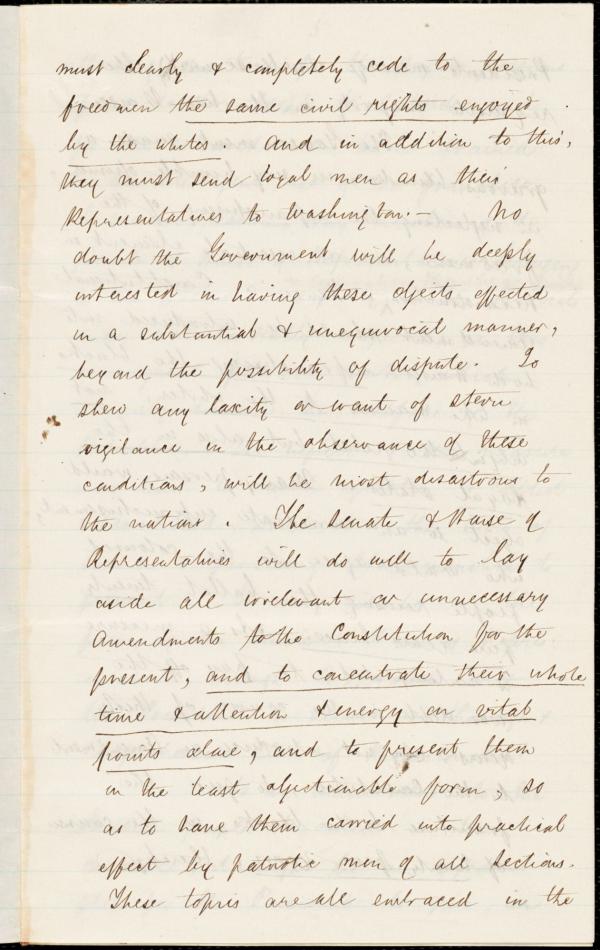 must clearly & completely cede to the
freedmen the same civil rights enjoyed
by the whites. And in addition to this,
they must send loyal men as their
Representatives to Washington. — No
doubt the Government will be deeply
interested in having these objects effected
in a substantial & unequivocal manner,
beyond the possibility of dispute. To
shew any laxity or want of stern
vigilance in the observance of these
conditions, will be most disastrous to
the nation. The Senate & House of
Representatives will do well to lay
aside all irrelevant or unnecessary
Amendments to the Constitution for the
present, and to concentrate their whole
time & attention & energy on vital
points alone, and to present them
in the least objectionable form, so
as to have them carried into practical
effect by patriotic men of all sections.
These topics are all embraced in the